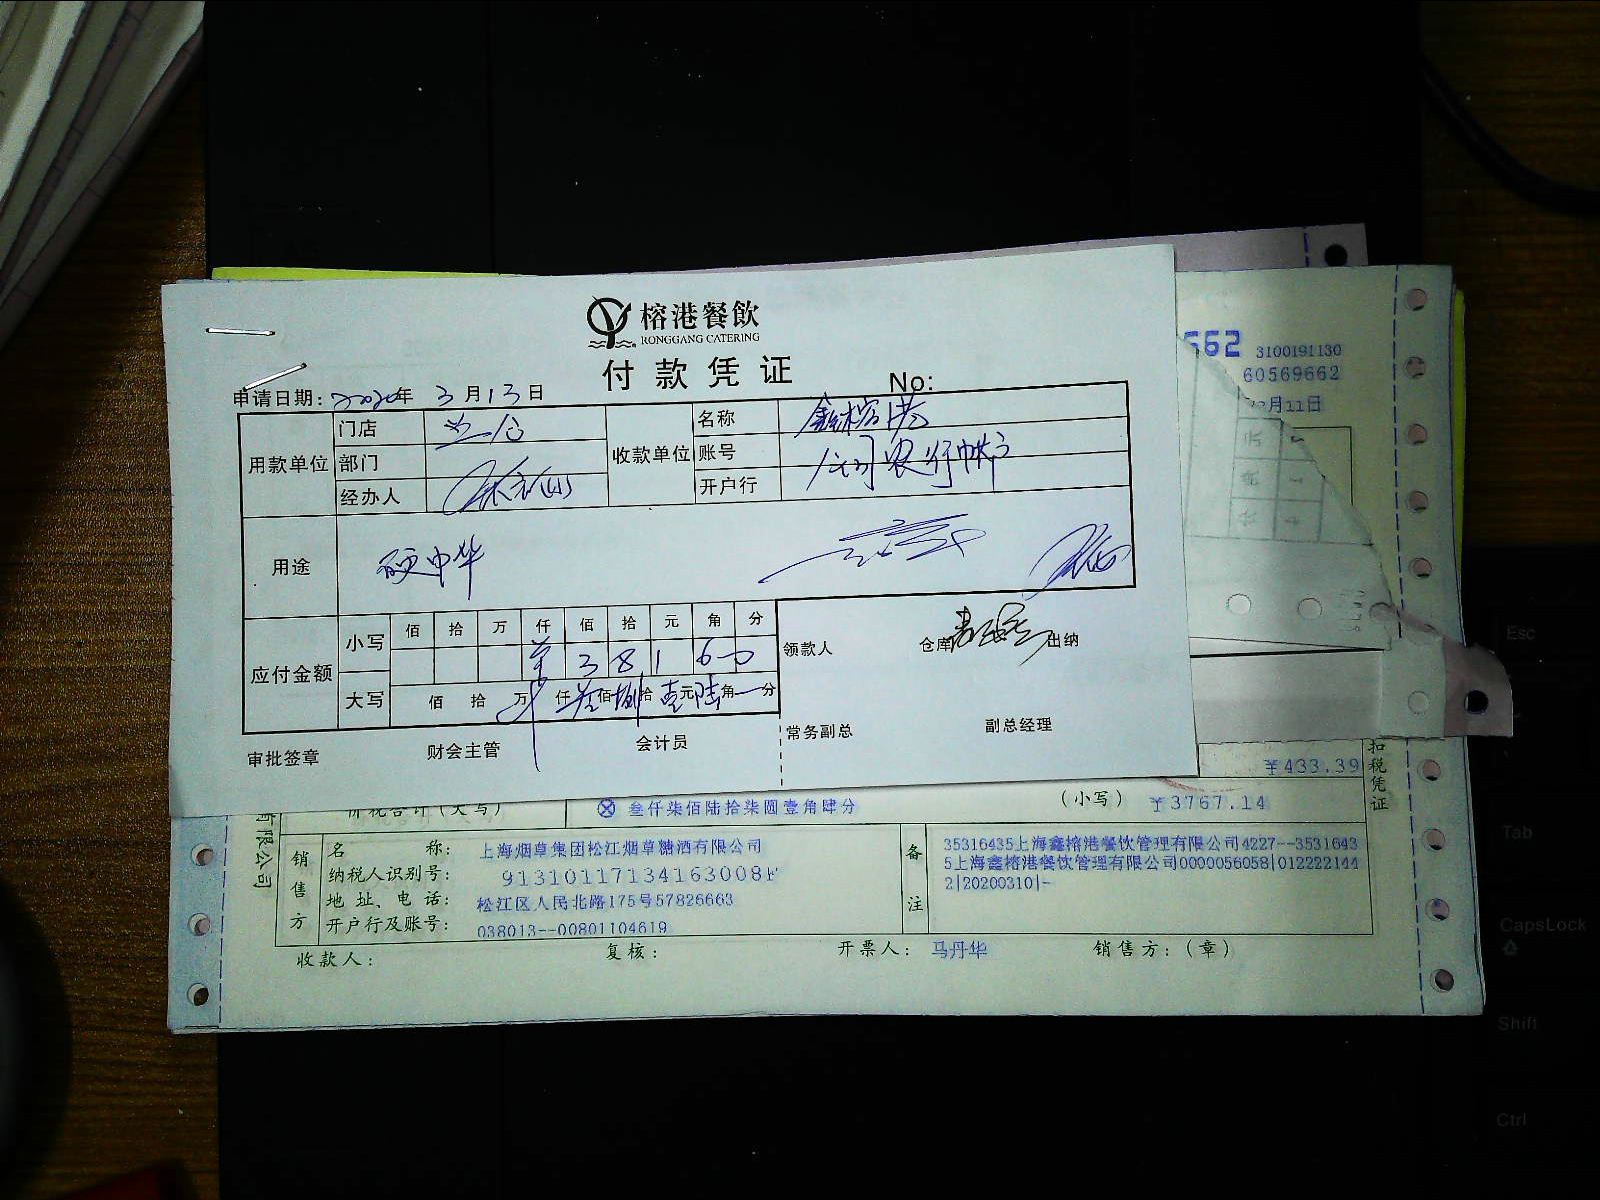 榕港餐飲
RONGGANG CATERING
付款凭证
No:
申请日期: 2020年 3月13日
用款单位
门店
部门
经办人
收款单位
名称 鑫榕港
账号 公司农行帐户
开户行
用途 硬中华
应付金额
小写 佰 拾 万 仟 佰 拾 元 角 分
¥ 3 8 1 6 0
大写 佰 拾 万 仟 叁佰 捌拾 壹元 陆角 分
领款人 仓库 出纳
常务副总 副总经理
审批签章 财会主管 会计员
662 3100191130
60569662
月11日
¥433.39
扣税凭证
价税合计(大写) ⊗ 叁仟柒佰陆拾柒圆壹角肆分 (小写) ¥3767.14
有限公司
销售方
名 称: 上海烟草集团松江烟草糖酒有限公司
纳税人识别号: 91310117134163008F
地 址、电 话: 松江区人民北路175号57826663
开户行及账号: 038013--00801104619
备注
35316435上海鑫榕港餐饮管理有限公司4227--3531643
5上海鑫榕港餐饮管理有限公司0000056058|012222144
2|20200310|-
收款人: 复核: 开票人: 马丹华 销售方:(章)
Esc
Tab
CapsLock
Shift
Ctrl